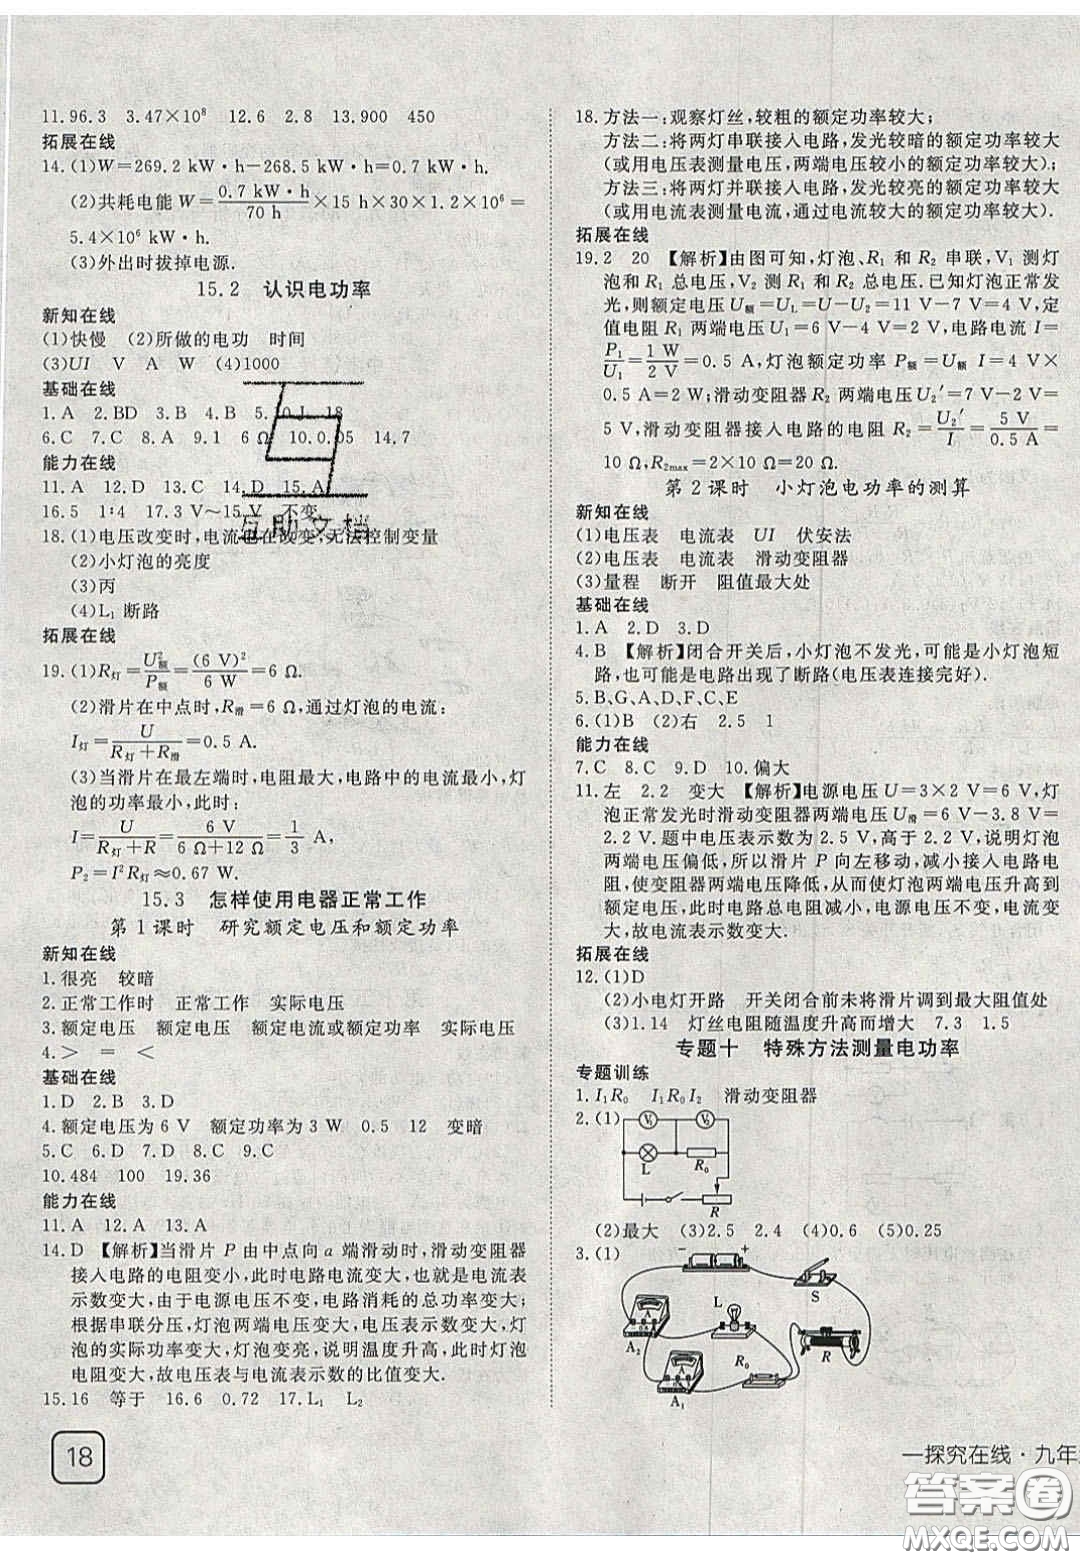 11.96.3　3.47×10⁸　12.6　2.8　13.900　450
拓展在线
14.(1)W=269.2 kW·h−268.5 kW·h=0.7 kW·h.
(2)共耗电能=0.7 kW·h/70 h×15 h×30×1.2×10⁶=
5.4×10⁶ kW·h.
(3)外出时拔掉电源.
15.2　认识电功率
新知在线
(1)快慢　(2)所做的电功　时间
(3)UI　V　A　W　(4)1000
基础在线
1.A　2.BD　3.B　4.B　5.10 J　18
6.C　7.C　8.A　9.1　6 Ω　10.0.05　14.7
能力在线
11.A　12.D　13.C　14.D　15.A
16.5　1∶4　17.3 V～15 V　不变
18.(1)电压改变时,电流也在改变,无法控制变量
(2)小灯泡的亮度
(3)丙
(4)L₁断路
拓展在线
19.(1)R灯=U额²/P额=(6 V)²/6 W=6 Ω.
(2)滑片在中点时,R滑=6 Ω,通过灯泡的电流:
I灯=U/(R灯+R滑)=0.5 A.
(3)当滑片在最左端时,电阻最大,电路中的电流最小,灯
泡的功率最小,此时:
I=U/(R灯+R)=6 V/(6 Ω+12 Ω)=1/3 A,
P₂=I²R灯≈0.67 W.
15.3　怎样使用电器正常工作
第1课时　研究额定电压和额定功率
新知在线
1.很亮　较暗
2.正常工作时　正常工作　实际电压
3.额定电压　额定电压　额定电流或额定功率　实际电压
4.＞　＝　＜
基础在线
1.D　2.B　3.D
4.额定电压为6 V　额定功率为3 W　0.5　12　变暗
5.C　6.D　7.D　8.C　9.C
10.484　100　19.36
能力在线
11.A　12.A　13.A
14.D　【解析】当滑片P由中点向a端滑动时,滑动变阻器
接入电路的电阻变小,此时电路电流变大,也就是电流表
示数变大,由于电源电压不变,电路消耗的总功率变大;
根据串联分压,灯泡两端电压变大,电压表示数变大,灯泡
的实际功率变大,灯泡变亮,说明温度升高,此时灯泡
电阻变大,故电压表与电流表示数的比值变大.
15.16　等于　16.6　0.72　17.L₁　L₂
18
18.方法一:观察灯丝,较粗的额定功率较大;
方法二:将两灯串联接入电路,发光较暗的额定功率较大
(或用电压表测量电压,两端电压较小的额定功率较大);
方法三:将两灯并联接入电路,发光较亮的额定功率较大
(或用电流表测量电流,通过电流较大的额定功率较大).
拓展在线
19.2　20　【解析】由图可知,灯泡、R₁和R₂串联,V₁测灯
泡和R₁总电压,V₂测R₁和R₂总电压.已知灯泡正常发
光,则额定电压U额=UL=U−U₂=11 V−7 V=4 V,定
值电阻R₁两端电压U₁=6 V−4 V=2 V,电路电流I=
P₁/U₁=1 W/2 V=0.5 A,灯泡额定功率P额=U额 I=4 V×
0.5 A=2 W;滑动变阻器R₂两端电压U₂′=7 V−2 V=
5 V,滑动变阻器接入电路的电阻R₂=U₂′/I=5 V/0.5 A=
10 Ω,R₂max=2×10 Ω=20 Ω.
第2课时　小灯泡电功率的测算
新知在线
(1)电压表　电流表　UI　伏安法
(2)电压表　电流表　滑动变阻器
(3)量程　断开　阻值最大处
基础在线
1.A　2.D　3.D
4.B　【解析】闭合开关后,小灯泡不发光,可能是小灯泡短
路,也可能是电路出现了断路(电压表连接完好).
5.B、G、A、D、F、C、E
6.(1)B　(2)右　2.5　1
能力在线
7.C　8.C　9.D　10.偏大
11.左　2.2　变大　【解析】电源电压U=3×2 V=6 V,灯
泡正常发光时滑动变阻器两端电压U滑=6 V−3.8 V=
2.2 V.题中电压表示数为2.5 V,高于2.2 V,说明灯泡
两端电压偏低,所以滑片P向左移动,减小接入电路电
阻,使变阻器两端电压降低,从而使灯泡两端电压升高到
额定电压.因为总电阻减小,电源电压不变,电流变
大,故电流表示数变大.
拓展在线
12.(1)D
(2)小电灯开路　开关闭合前未将滑片调到最大阻值处
(3)1.14　灯丝电阻随温度升高而增大　7.3　1.5
专题十　特殊方法测量电功率
专题训练
1.I₁R₀　I₁R₀I₂　滑动变阻器
2.(1)
V₁　V₂
L　R₀
R
(2)最大　(3)2.5　2.4　(4)0.6　(5)0.25
3.(1)
−　+
S
L
A　A₂
R
R₀
A　A₁
一探究在线·九年
互助文档
答案圈
MXQE.COM